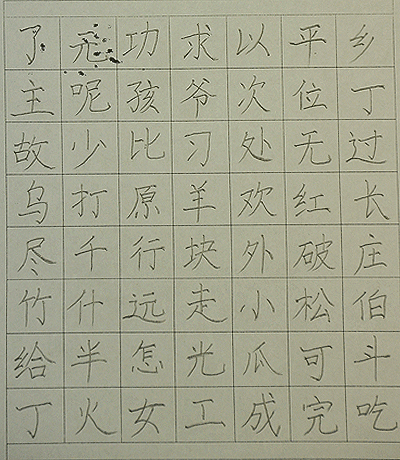 了元功求以平乡
主呢孩爷次位丁
故少比习处无过
乌打原羊欢红长
尽千行块外破庄
竹什远走小松伯
给半怎光瓜可斗
丁火女工成完吃